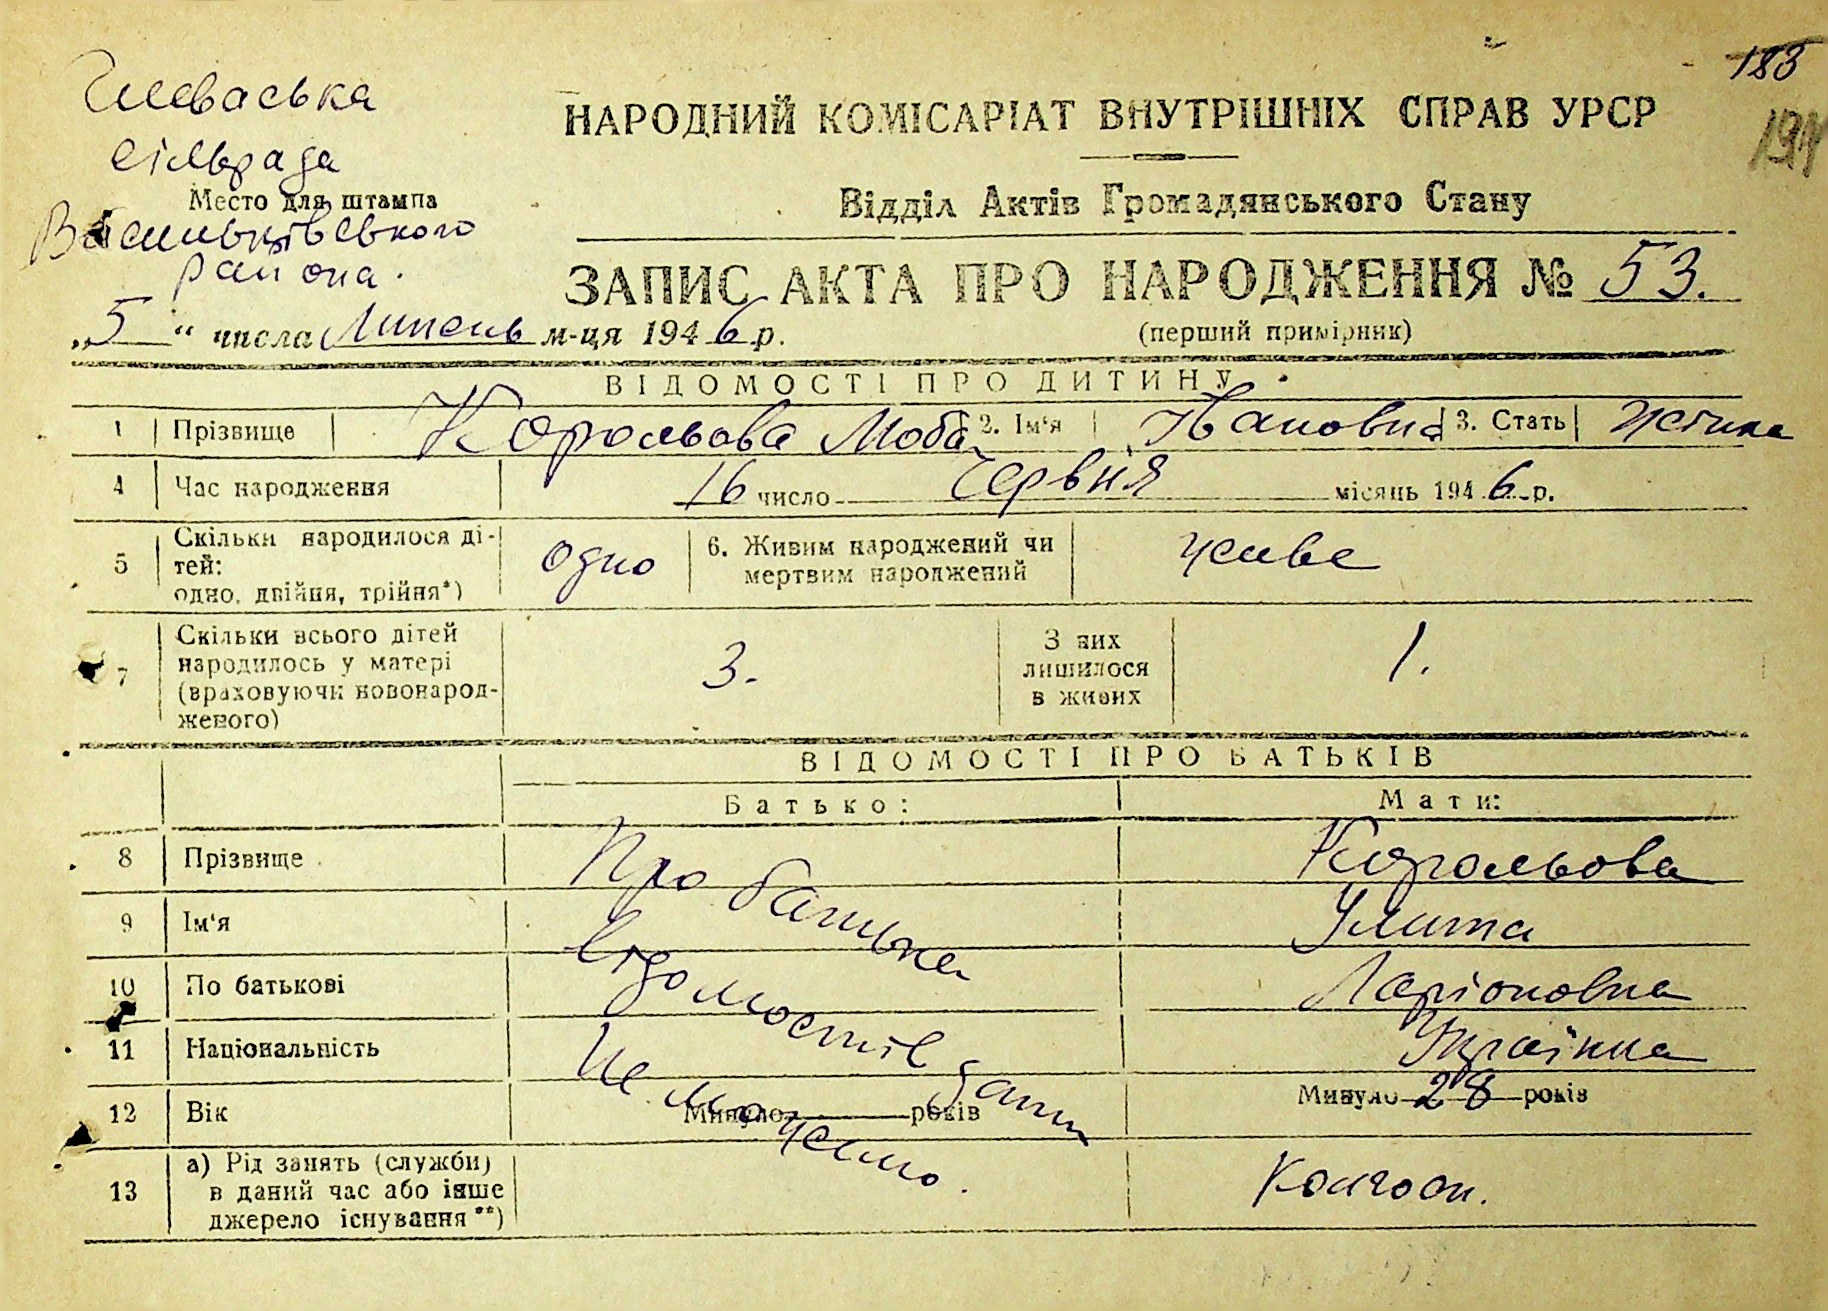 Глеваська
сільрада
Место для штампа
Васильківського
района.
183
191
НАРОДНИЙ КОМІСАРІАТ ВНУТРІШНІХ СПРАВ УРСР
Відділ Актів Громадянського Стану
ЗАПИС АКТА ПРО НАРОДЖЕННЯ № 53.
„5“ числа Липень м-ця 1946 р.
(перший примірник)
ВІДОМОСТІ ПРО ДИТИНУ
1 Прізвище Корольова Люба 2. Ім'я Івановна 3. Стать Жіноча
4 Час народження 16 число Червня місяць 1946 р.
5 Скільки народилося ді-
тей:
одно, двійня, трійня*) одно 6. Живим народжений чи
мертвим народжений живе
7 Скільки всього дітей
народилось у матері
(враховуючи новонарод-
женого) 3. З них
лишилося
в живих 1.
ВІДОМОСТІ ПРО БАТЬКІВ
Батько: Мати:
8 Прізвище Про батька Корольова
9 Ім'я відомостів Улита
10 По батькові дати Ларіоновна
11 Національність не можемо. Українка
12 Вік Минуло років Минуло 28 років
13 а) Рід занять (служби)
в даний час або інше
джерело існування**) Колгосп.